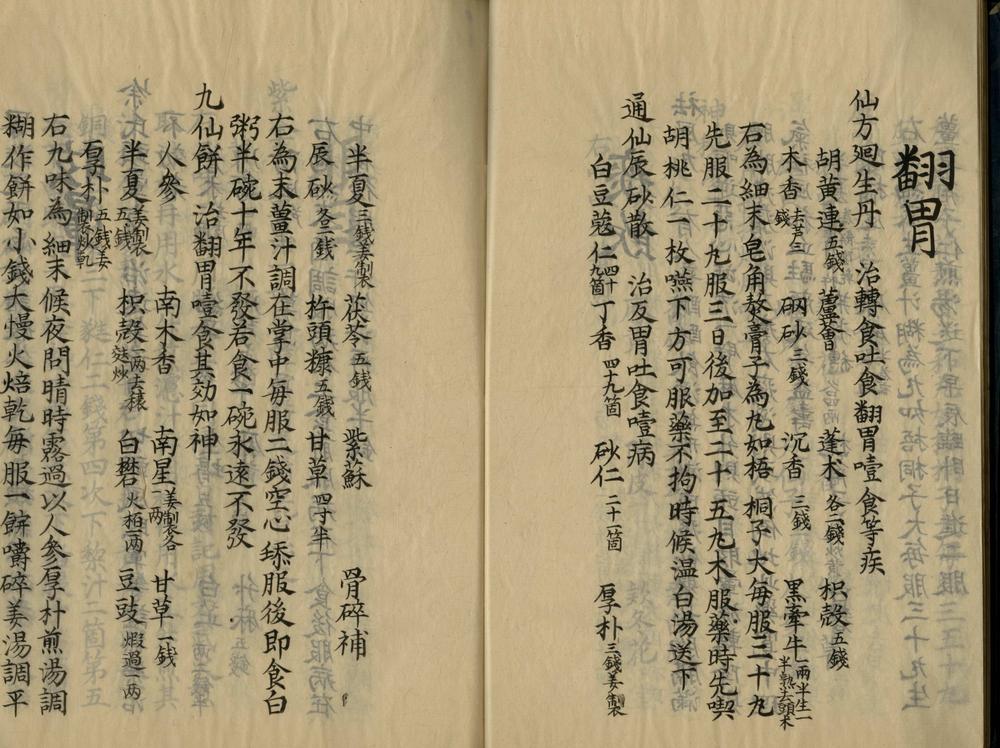 翻胃
仙方廻生丹 治轉食吐食翻胃噎食等疾
胡黄連五錢 蘆薈 蓬木各二錢 枳殼五錢
木香去芦二錢 硇砂三錢 沉香三錢 黑牽牛一兩半生一半熟去頭末
右為細末皂角熬膏子為丸如梧桐子大每服三十丸
先服二十九服三日後加至二十五九木服藥時先喫
胡桃仁一枚嚥下方可服藥不拘時候温白湯送下
通仙辰砂散 治反胃吐食噎病
白豆蔻仁四十九箇 丁香四十九箇 砂仁二十一箇 厚朴三錢姜製
半夏三錢姜製 茯苓五錢 紫蘇 骨碎補
辰砂叁錢 杵頭糠五錢 甘草四寸半
右為末薑汁調在掌中每服二錢空心舔服後即食白
粥半碗十年不發若食一碗永遠不發
九仙餅 治翻胃噎食其効如神
人參 南木香 南星姜製各一兩 甘草一錢
半夏姜製五錢 枳殼一兩去穰麩炒 白礬火枯一兩 豆豉煆過一兩
厚朴五錢姜製炒乾
右九味為細末候夜間晴時露過以人參厚朴煎湯調
糊作餅如小錢大慢火焙乾每服一餅嚼碎姜湯調平